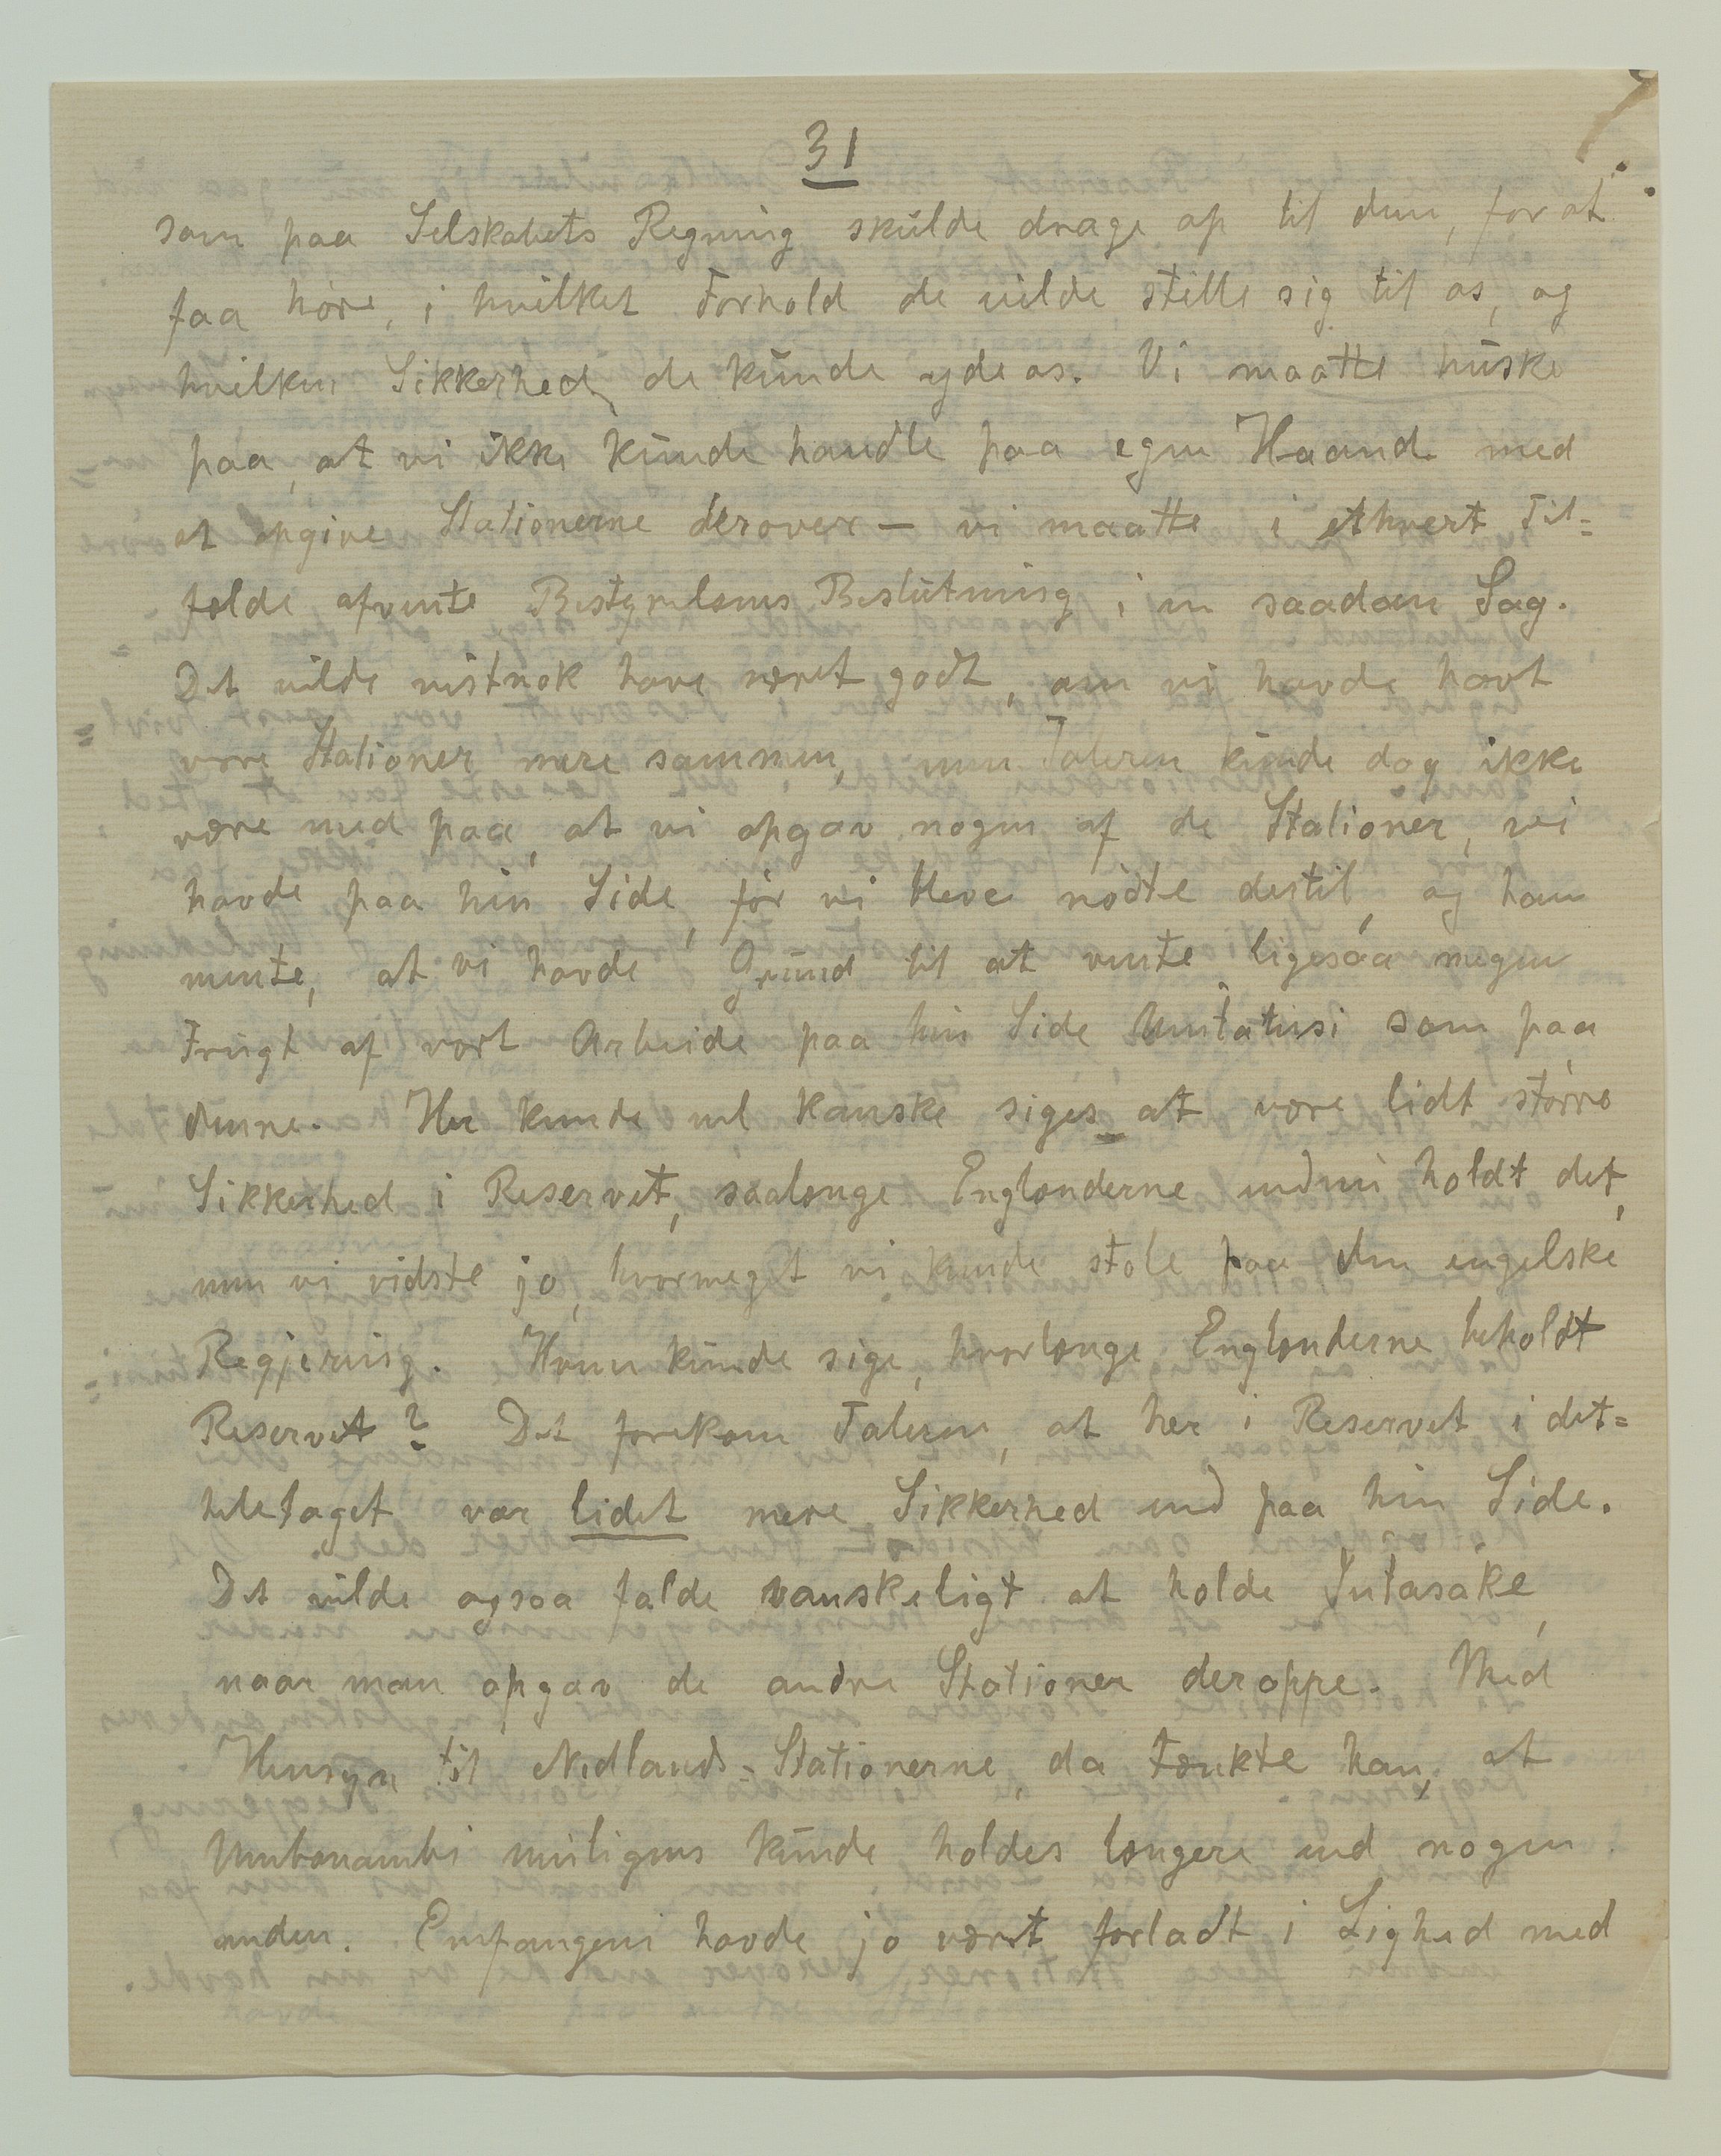 31
som paa Selskabets Regning skulde drage op til dem, for at
faa høre, i hvilket Forhold de vilde stille sig til os, og
hvilken Sikkerhed de kunde yde os. Vi maatte huske
paa, at vi ikke kunde handle paa egen Haand med
at opgive Stationerne derover – vi maatte i ethvert Til=
fælde afvente Bestyrelsens Beslutning i en saadan Sag.
Det vilde vistnok have været godt, om vi havde havt
vore Stationer mere sammen, men Taleren kunde dog ikke
være med paa, at vi opgav nogen af de Stationer, vi
havde paa hin Side, før vi bleve nødte dertil, og han
mente, at vi havde Grund til at vente ligesaa megen
Frugt af vort Arbeide paa hin Side Umlatusi som paa
denne. Her kunde vel kanske siges at være lidt større
Sikkerhed i Reservet, saalænge Englænderne endnu holdt det,
men vi vidste jo, hvormeget vi kunde stole paa den engelske
Regjering. Hvem kunde sige, hvorlænge Englænderne beholdt
Reservet? Det forekom Taleren, at her i Reservet i det=
heletaget var lidet mere Sikkerhed end paa hin Side.
Det vilde ogsaa falde vanskeligt at holde Intasake,
naar man opgav de andre Stationer deroppe. Med
Hensyn til Nedlands-Stationerne, da tænkte han, at
Umbonambi muligens kunde holdes længere end nogen
anden. Empangeni havde jo været forladt i Lighed med